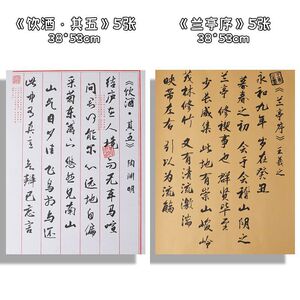 《饮酒·其五》5张
38*53cm
《饮酒·其五》 陶渊明
结庐在人境 而无车马喧
问君何能尔 心远地自偏
采菊东篱下 悠然见南山
山气日夕佳 飞鸟相与还
此中有真意 欲辨已忘言
《兰亭序》5张
38*53cm
《兰亭序》 王羲之
永和九年 岁在癸丑
暮春之初 会于会稽山阴之
兰亭 修禊事也 群贤毕至
少长咸集 此地有崇山峻岭
茂林修竹 又有清流激湍
映带左右 引以为流觞